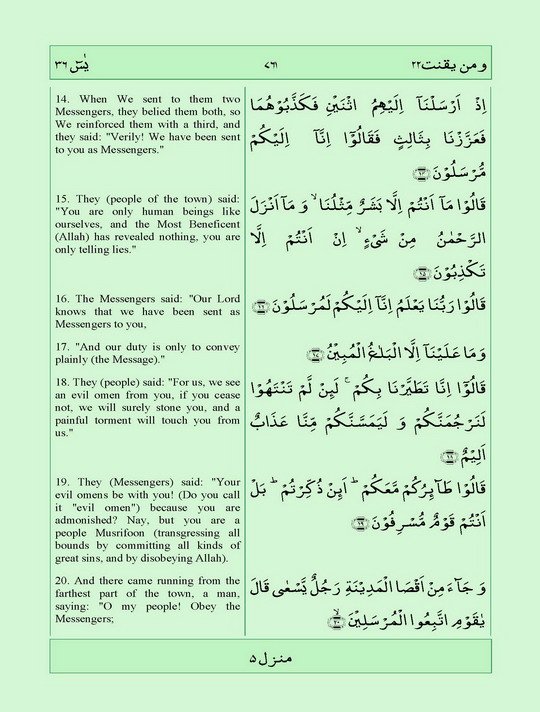 یٰسٓ ۳۶
۷۶۱
ومن یقنت ۲۲
14. When We sent to them two
Messengers, they belied them both, so
We reinforced them with a third, and
they said: "Verily! We have been sent
to you as Messengers."
اِذْ اَرْسَلْنَاۤ اِلَیْهِمُ اثْنَیْنِ فَکَذَّبُوْهُمَا
فَعَزَّزْنَا بِثَالِثٍ فَقَالُوْۤا اِنَّاۤ اِلَیْکُمْ
مُّرْسَلُوْنَ ۝۱۴
15. They (people of the town) said:
"You are only human beings like
ourselves, and the Most Beneficent
(Allah) has revealed nothing, you are
only telling lies."
قَالُوْا مَاۤ اَنْتُمْ اِلَّا بَشَرٌ مِّثْلُنَا ۙ وَ مَاۤ اَنْزَلَ
الرَّحْمٰنُ مِنْ شَیْءٍ ۙ اِنْ اَنْتُمْ اِلَّا
تَکْذِبُوْنَ ۝۱۵
16. The Messengers said: "Our Lord
knows that we have been sent as
Messengers to you,
قَالُوْا رَبُّنَا یَعْلَمُ اِنَّاۤ اِلَیْکُمْ لَمُرْسَلُوْنَ ۝۱۶
17. "And our duty is only to convey
plainly (the Message)."
وَ مَا عَلَیْنَاۤ اِلَّا الْبَلٰغُ الْمُبِیْنُ ۝۱۷
18. They (people) said: "For us, we see
an evil omen from you, if you cease
not, we will surely stone you, and a
painful torment will touch you from
us."
قَالُوْۤا اِنَّا تَطَیَّرْنَا بِکُمْ ۚ لَىِٕنْ لَّمْ تَنْتَهُوْا
لَنَرْجُمَنَّکُمْ وَ لَیَمَسَّنَّکُمْ مِّنَّا عَذَابٌ
اَلِیْمٌ ۝۱۸
19. They (Messengers) said: "Your
evil omens be with you! (Do you call
it "evil omen") because you are
admonished? Nay, but you are a
people Musrifoon (transgressing all
bounds by committing all kinds of
great sins, and by disobeying Allah).
قَالُوْا طَآىِٕرُکُمْ مَّعَکُمْ ؕ اَىِٕنْ ذُکِّرْتُمْ ؕ بَلْ
اَنْتُمْ قَوْمٌ مُّسْرِفُوْنَ ۝۱۹
20. And there came running from the
farthest part of the town, a man,
saying: "O my people! Obey the
Messengers;
وَ جَآءَ مِنْ اَقْصَا الْمَدِیْنَةِ رَجُلٌ یَّسْعٰی قَالَ
یٰقَوْمِ اتَّبِعُوا الْمُرْسَلِیْنَ ۙ۝۲۰
منزل ۵